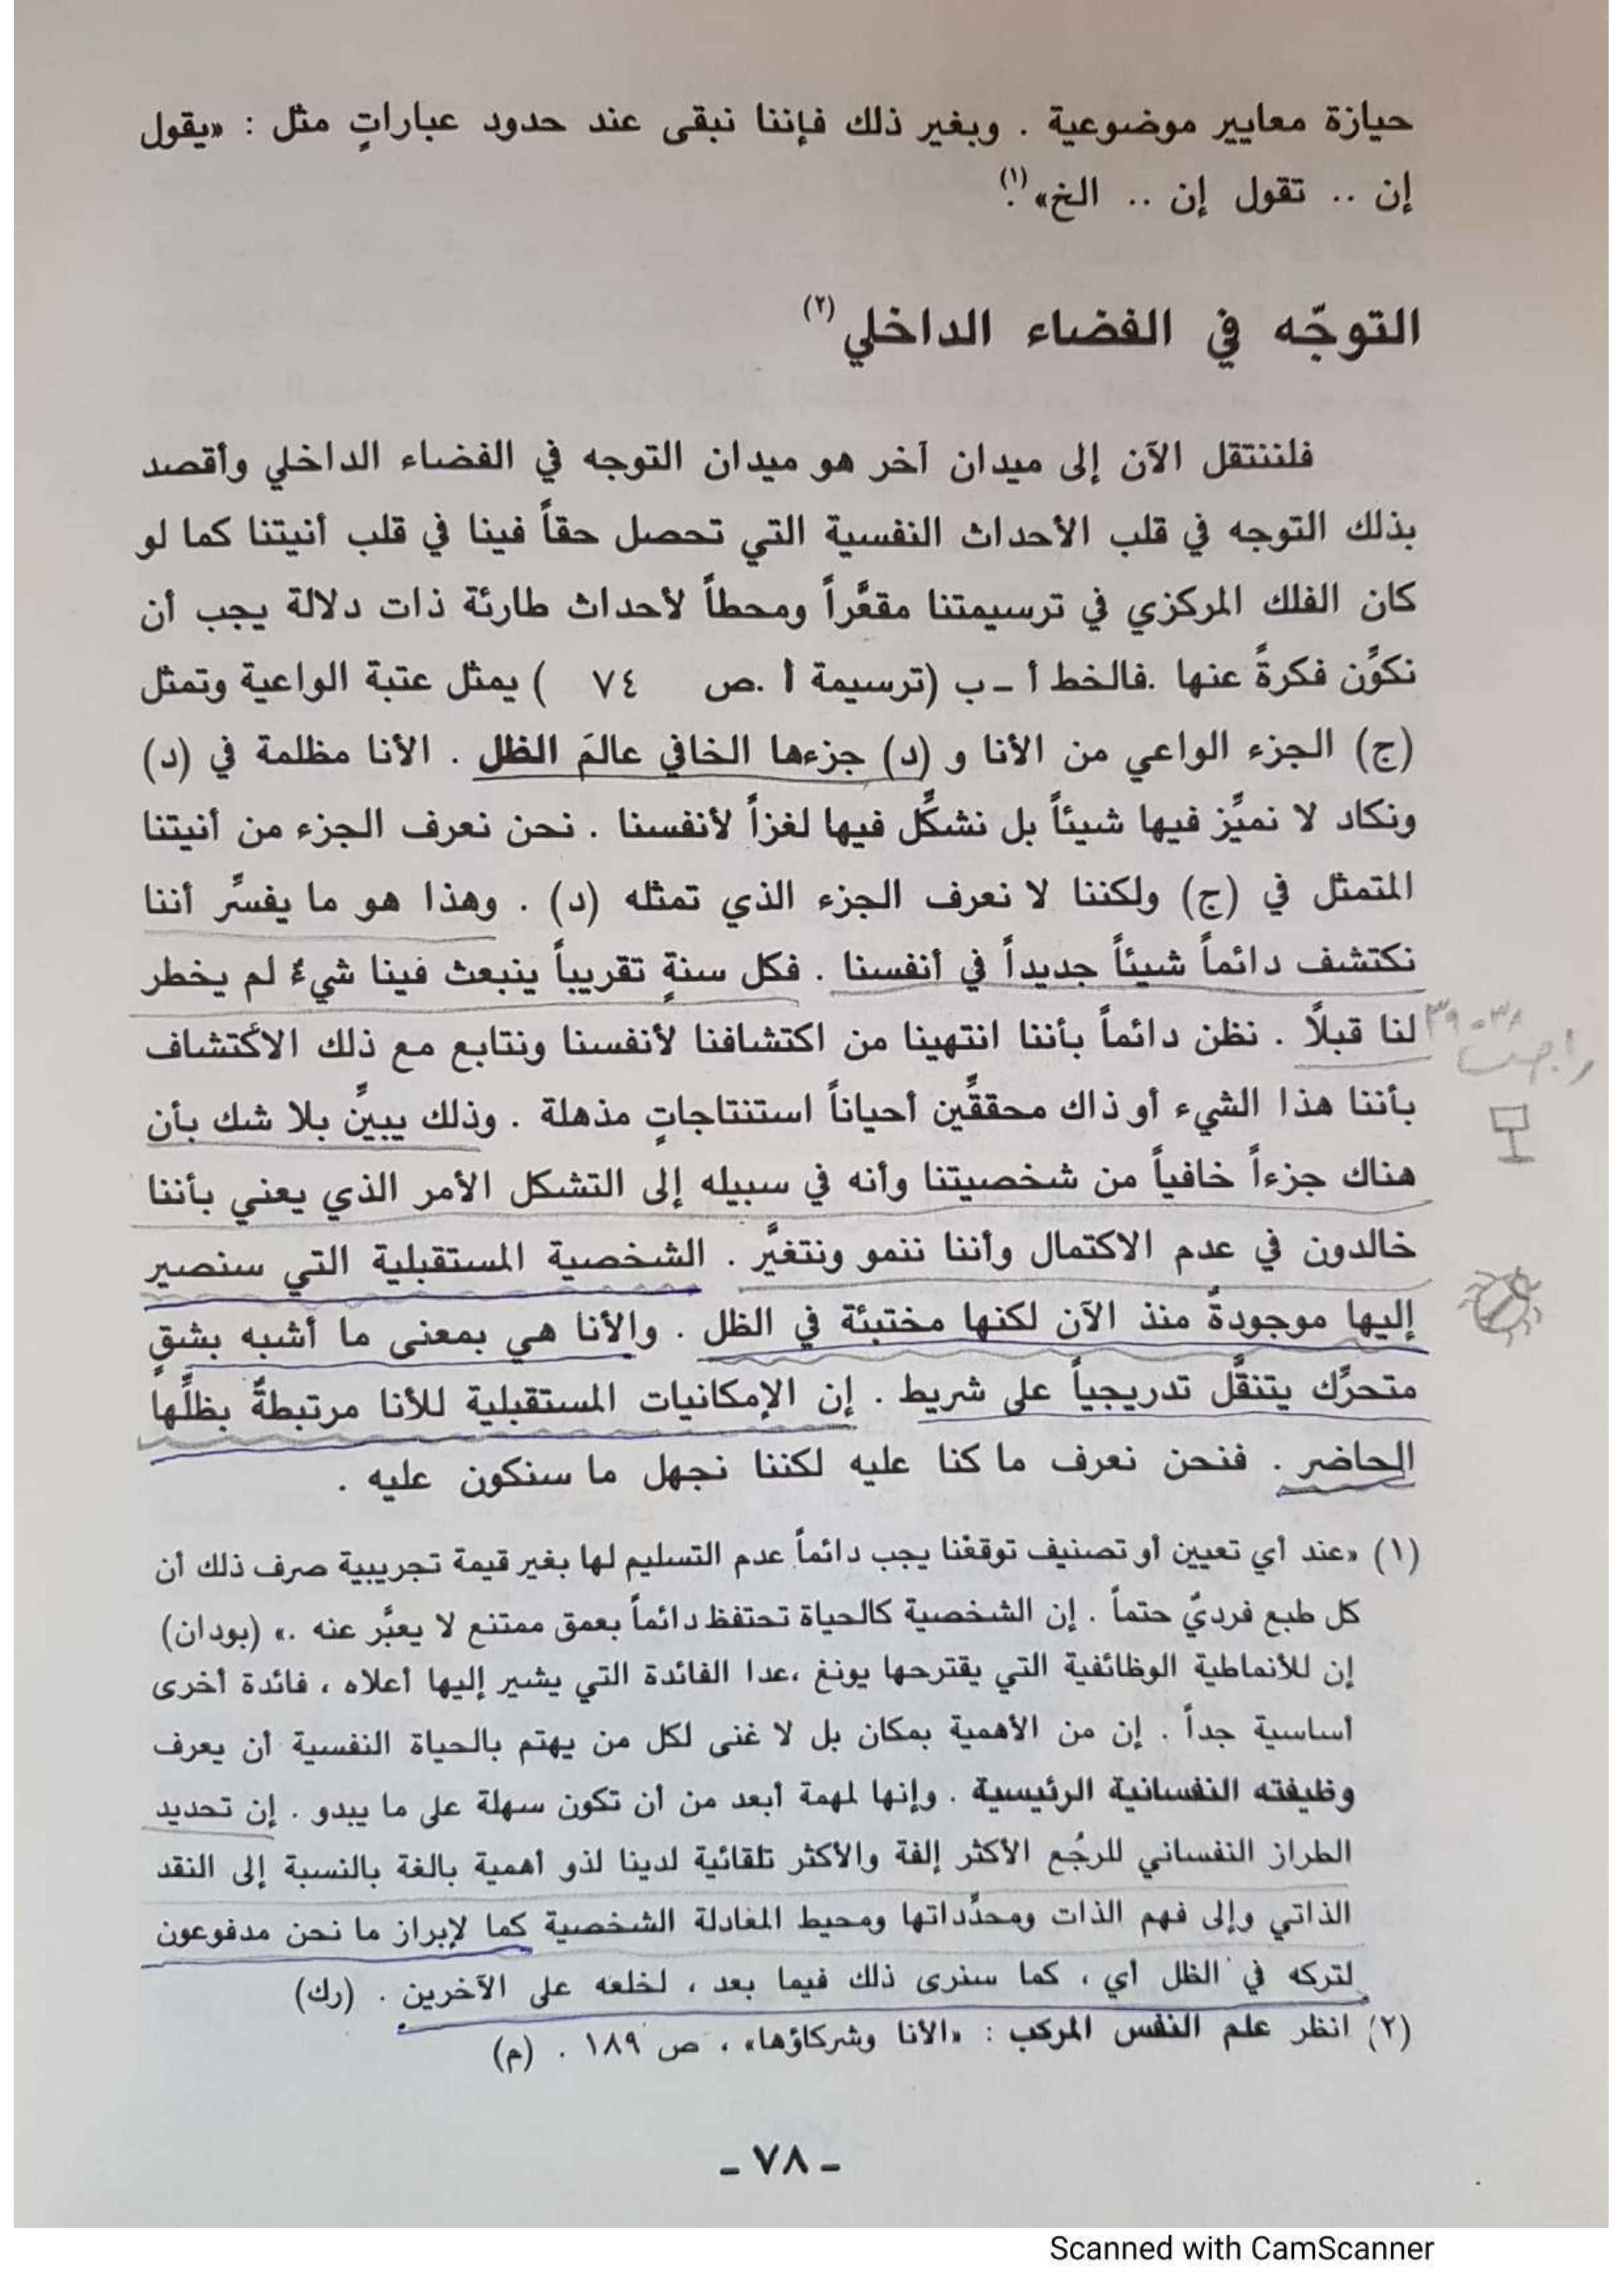 حيازة معايير موضوعية . وبغير ذلك فإننا نبقى عند حدود عباراتٍ مثل : «يقول
إن .. تقول إن .. الخ»(١).
التوجّه في الفضاء الداخلي (٢)
فلننتقل الآن إلى ميدان آخر هو ميدان التوجه في الفضاء الداخلي وأقصد
بذلك التوجه في قلب الأحداث النفسية التي تحصل حقاً فينا في قلب أنيتنا كما لو
كان الفلك المركزي في ترسيمتنا مقعَّراً ومحطاً لأحداث طارئة ذات دلالة يجب أن
نكوِّن فكرةً عنها . فالخط أ ـ ب (ترسيمة أ . ص ٧٤ ) يمثل عتبة الواعية وتمثل
(ج) الجزء الواعي من الأنا و (د) جزءها الخافي عالمَ الظل . الأنا مظلمة في (د)
ونكاد لا نميِّز فيها شيئاً بل نشكِّل فيها لغزاً لأنفسنا . نحن نعرف الجزء من أنيتنا
المتمثل في (ج) ولكننا لا نعرف الجزء الذي تمثله (د) . وهذا هو ما يفسِّر أننا
نكتشف دائماً شيئاً جديداً في أنفسنا . فكل سنةٍ تقريباً ينبعث فينا شيءٌ لم يخطر
لنا قبلاً . نظن دائماً بأننا انتهينا من اكتشافنا لأنفسنا ونتابع مع ذلك الاكتشاف
٣٨-٣٩
بأننا هذا الشيء أو ذاك محققِّين أحياناً استنتاجاتٍ مذهلة . وذلك يبيِّن بلا شك بأن
هناك جزءاً خافياً من شخصيتنا وأنه في سبيله إلى التشكل الأمر الذي يعني بأننا
خالدون في عدم الاكتمال وأننا ننمو ونتغيَّر . الشخصية المستقبلية التي سنصير
إليها موجودةٌ منذ الآن لكنها مختبئة في الظل . والأنا هي بمعنى ما أشبه بشقٍ
متحرِّك يتنقَّل تدريجياً على شريط . إن الإمكانيات المستقبلية للأنا مرتبطةٌ بظلِّها
الحاضر . فنحن نعرف ما كنا عليه لكننا نجهل ما سنكون عليه .
(١) «عند أي تعيين أو تصنيف توقعْنا يجب دائماً عدم التسليم لها بغير قيمة تجريبية صرف ذلك أن
كل طبع فرديٌ حتماً . إن الشخصية كالحياة تحتفظ دائماً بعمق ممتنع لا يعبَّر عنه .» (بودان)
إن للأنماطية الوظائفية التي يقترحها يونغ ،عدا الفائدة التي يشير إليها أعلاه ، فائدة أخرى
أساسية جداً . إن من الأهمية بمكان بل لا غنى لكل من يهتم بالحياة النفسية أن يعرف
وظيفته النفسانية الرئيسية . وإنها لمهمة أبعد من أن تكون سهلة على ما يبدو . إن تحديد
الطراز النفساني للرجُع الأكثر إلفة والأكثر تلقائية لدينا لذو أهمية بالغة بالنسبة إلى النقد
الذاتي وإلى فهم الذات ومحدِّداتها ومحيط المعادلة الشخصية كما لإبراز ما نحن مدفوعون
لتركه في الظل أي ، كما سنرى ذلك فيما بعد ، لخلعه على الآخرين . (رك)
(٢) انظر علم النفس المركب : «الأنا وشركاؤها» ، ص ١٨٩ . (م)
ـ ٧٨ ـ
Scanned with CamScanner